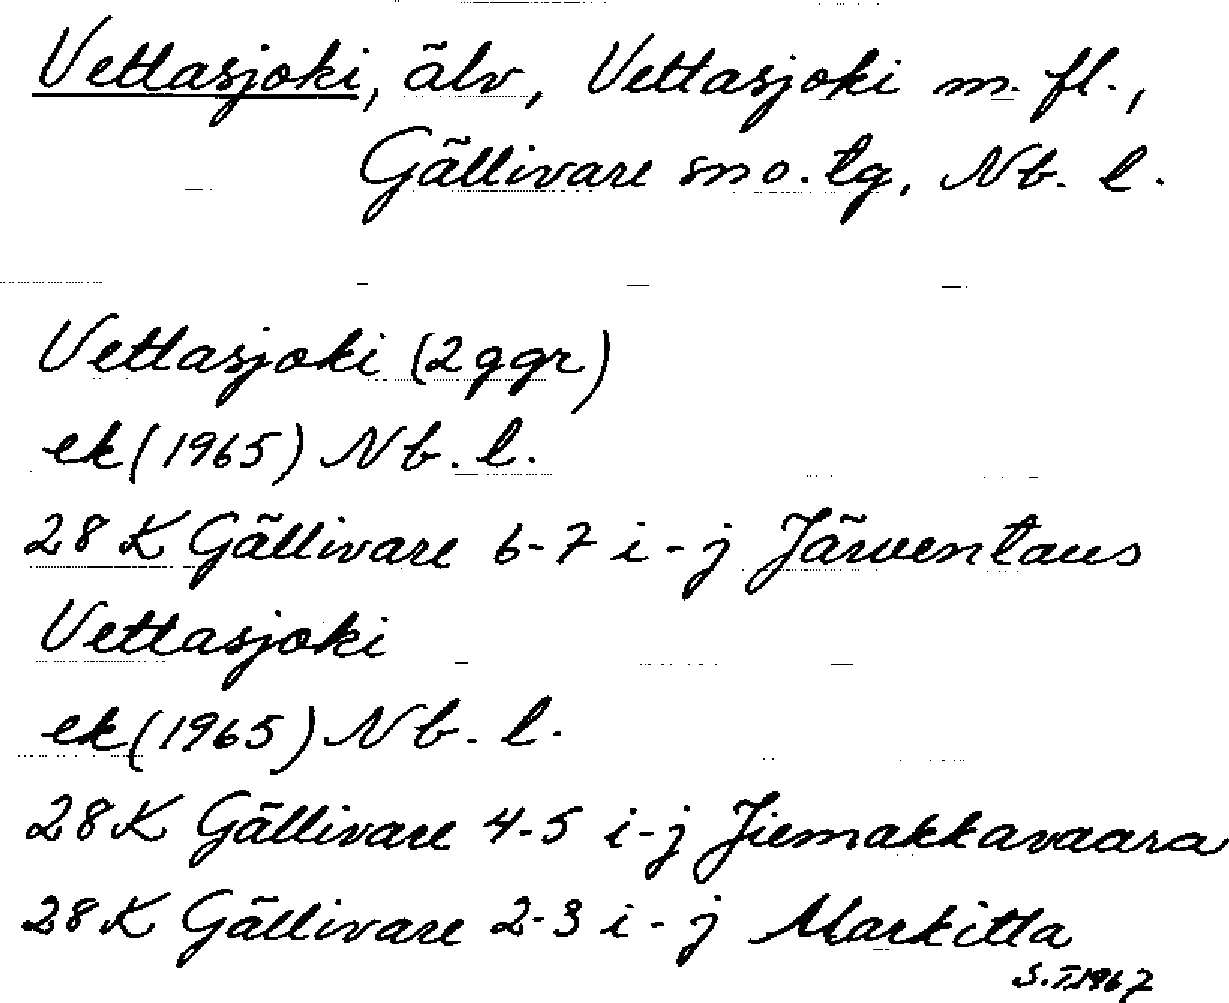 Vettasjoki, älv, Vettasjoki m. fl.,
Gällivare sno. tg, Nb. l.
Vettasjoki (2 ggr)
ek (1965) Nb. l.
28 K Gällivare 6-7 i-j Järventaus
Vettasjoki
ek (1965) Nb. l.
28 K Gällivare 4-5 i-j Jiemakkavaara
28 K Gällivare 2-3 i-j Markitta
S.T. 1967